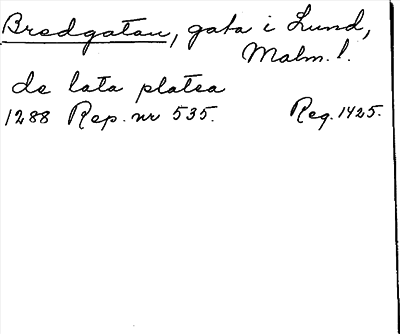 Bredgatan, gata i Lund,
Malm. l.
de lata platea
1288 Rep. nr 535. Reg. 1425.